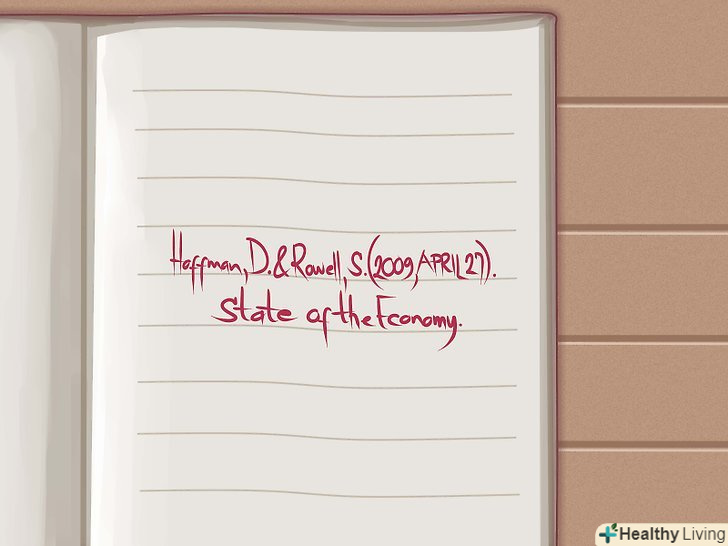 Hoffman, D. & Rowell, S. (2009, APRIL 27).
State of the Economy.
Healthy Living